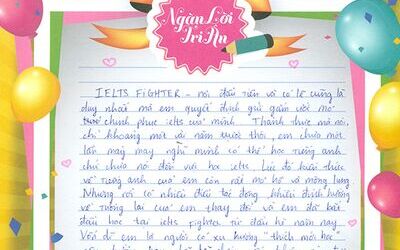 Ngàn Lời
Tri Ân
IELTS FIGHTER - nơi đầu tiên và có lẽ cũng là
duy nhất mà em quyết định gửi gắm ước mơ
chinh phục IELTS của mình. Thành thực mà nói,
chỉ khoảng một vài năm trước thôi, em chưa một
lần mảy may nghĩ mình có thể học tiếng anh
chứ chưa nói đến việc học ielts. Lúc đó kiến thức
về tiếng anh của em còn rất mơ hồ và mông lung
Nhưng vì có nhiều điều tác động khiến định hướng
về tương lai của em thay đổi và em đã bắt
đầu học tại ielts fighter từ đầu hè năm nay.
Vốn dĩ em là người có xu hướng "thích mới học"